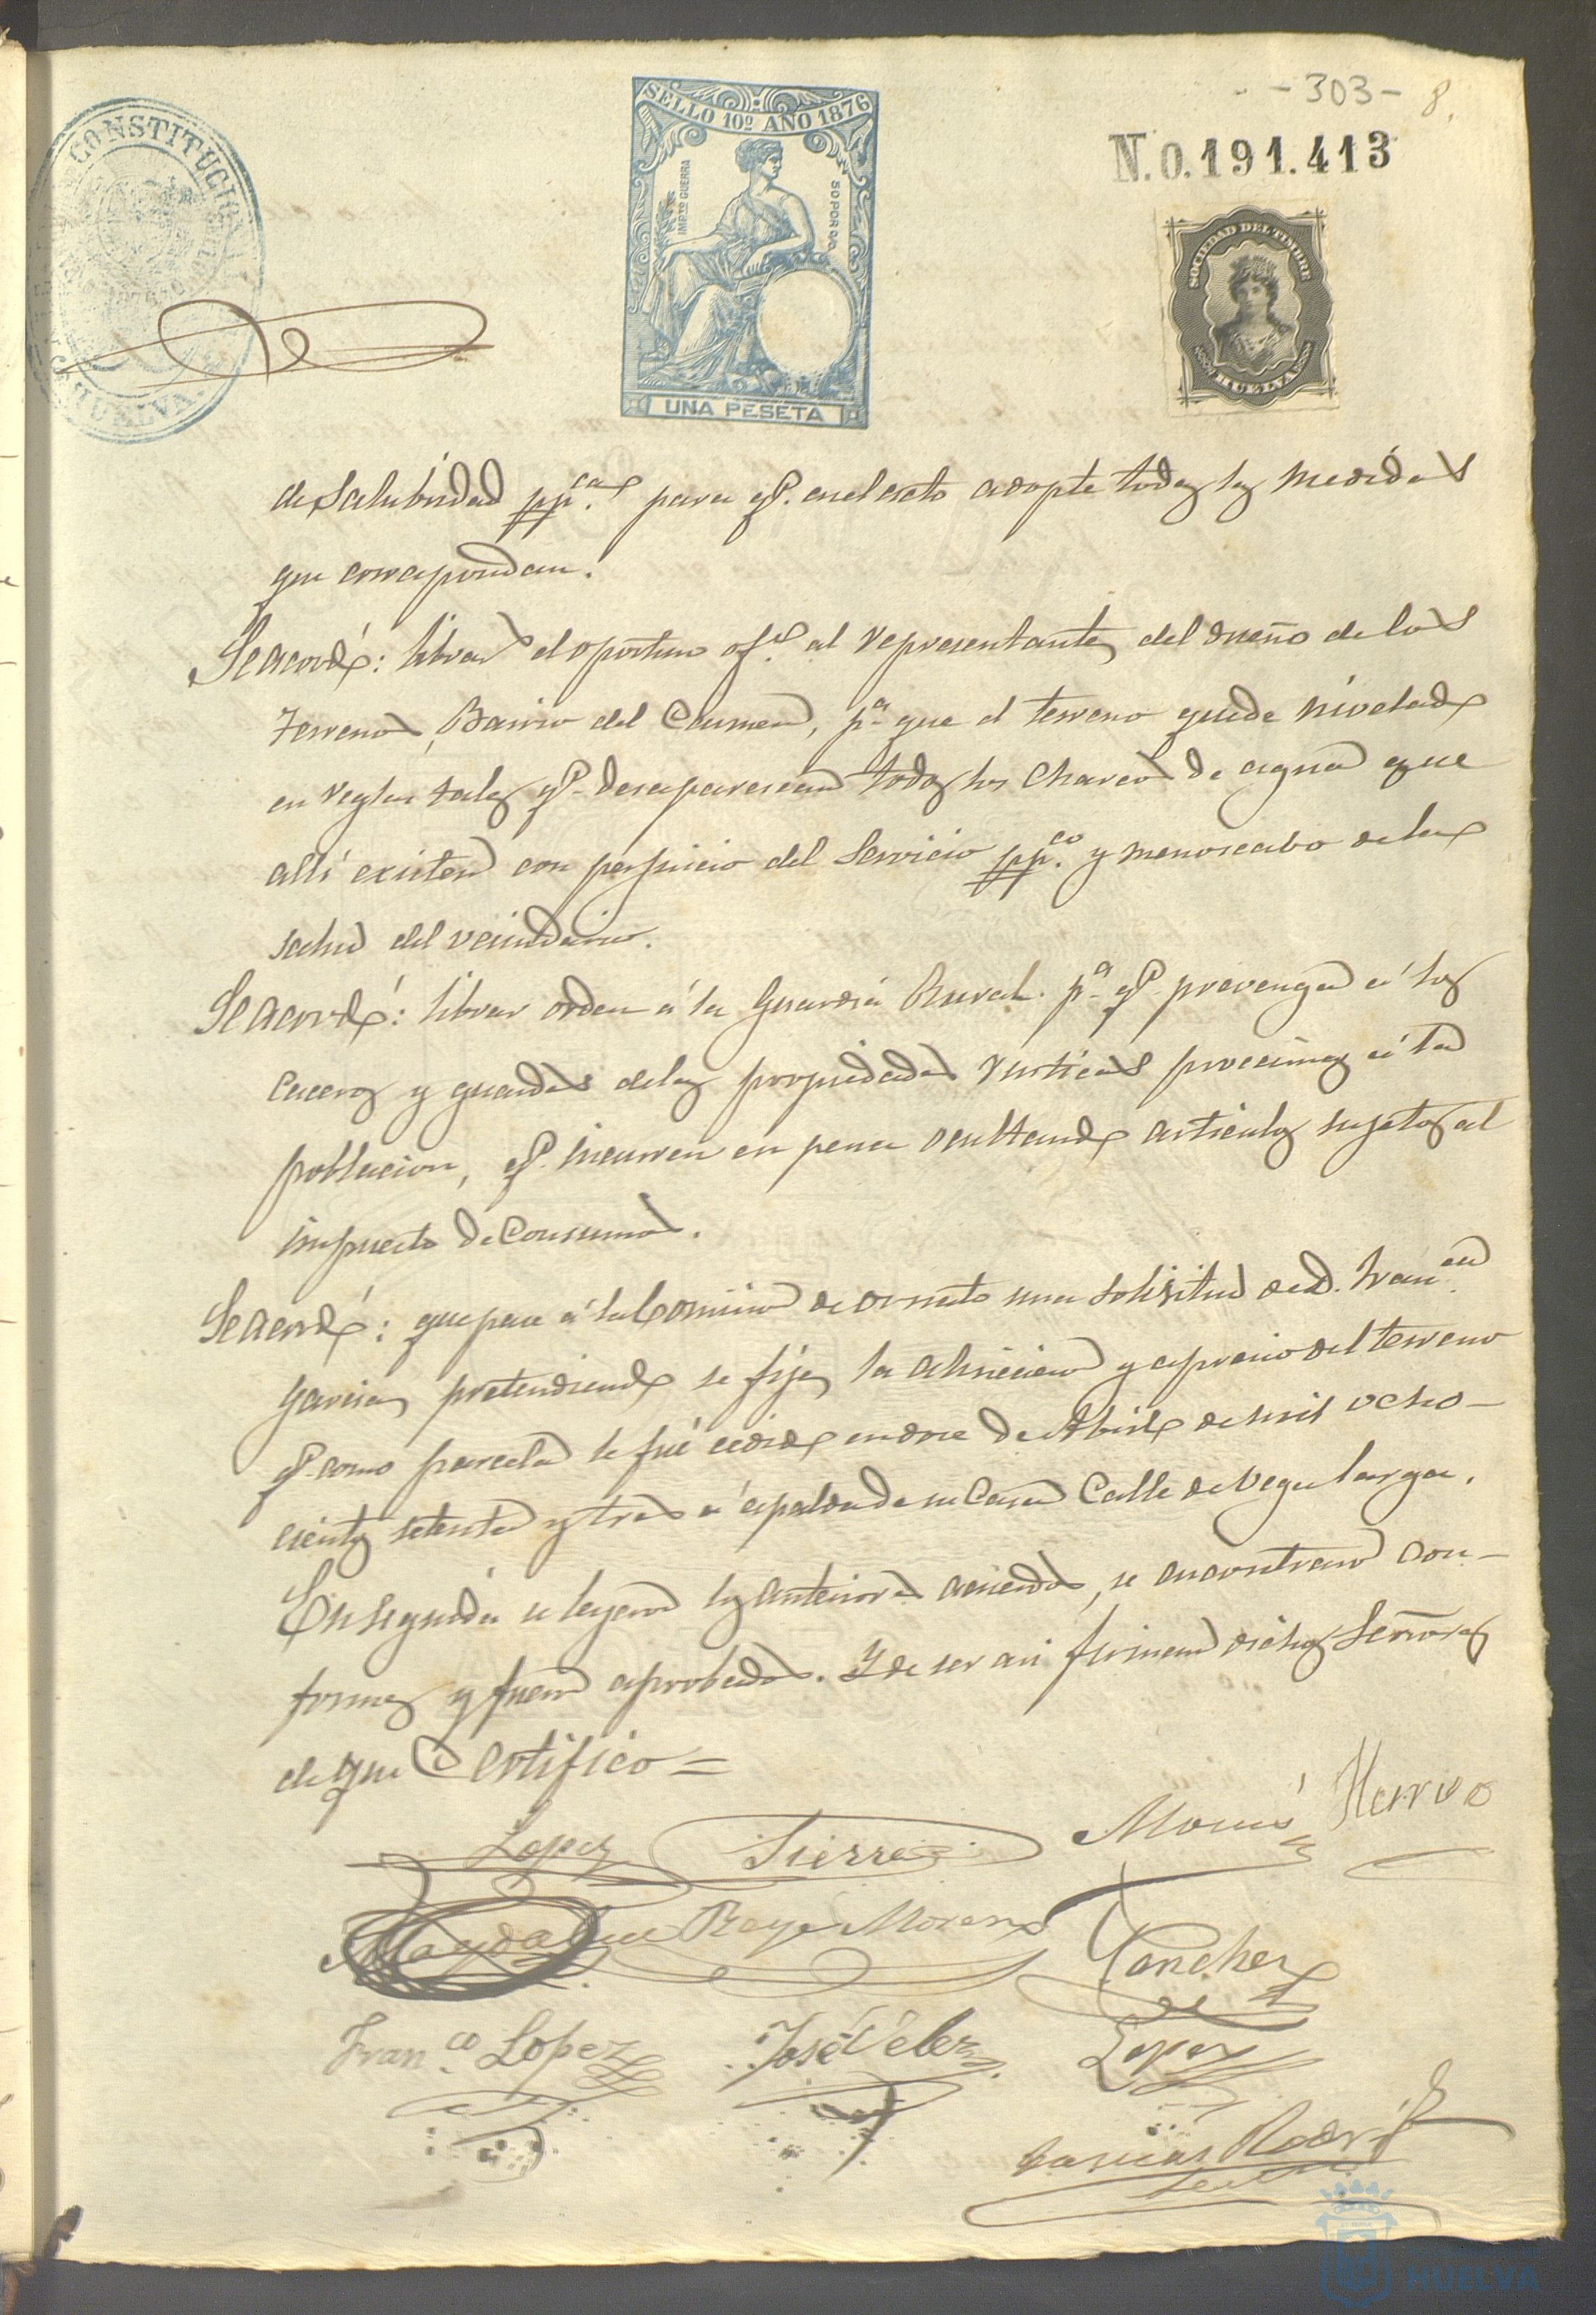 - 303 - 8.
N.0.191.413
CONSTITUCION
HUELVA
SELLO 10º AÑO 1876
IMPTO GUERRA
50 POR 00
UNA PESETA
SOCIEDAD DEL TIMBRE
HUELVA
de Salubridad pp.cas para qe. en el acto adopte todas las medidas
que correspondan.
Se acordó: librar el oportuno of.º al representante del dueño de los
terrenos, Barrio del Carmen, pª que el terreno quede nivelado
en reglas tales qe. desaparescan todos los charcos de agua que
allí existen con perjuicio del Servicio pp.co y menoscabo de la
salud del vecindario.
Se acordó: librar orden á la Guardia Rural pª qe. prevenga á los
caceros y guardas de las propiedades rusticas procsimas á la
poblacion, qe. incurren en pena ocultando articulos sujetos al
impuesto de Consumos.
Se acordó: que pase á la Comision de ornato una solisitud de D. Fran.co
Garcia pretendiendo se fije la alineacion y aprecio del terreno
qe. como parcela le fué cedido en doce de Abril de mil ocho-
cientos setenta y tres á espalda de su Casa Calle de Vega larga.
En seguida se leyeron los anteriores acuerdos, se encontraron con-
formes y fueron aprobados. Y de ser asi firman dichos Señores
de que Certifico=
Lopez Sierra Mo Hierro
Magdalena Reyes Moreno Sanchez
Fran.co Lopez José Velez Lopez
Rodri
HUELVA